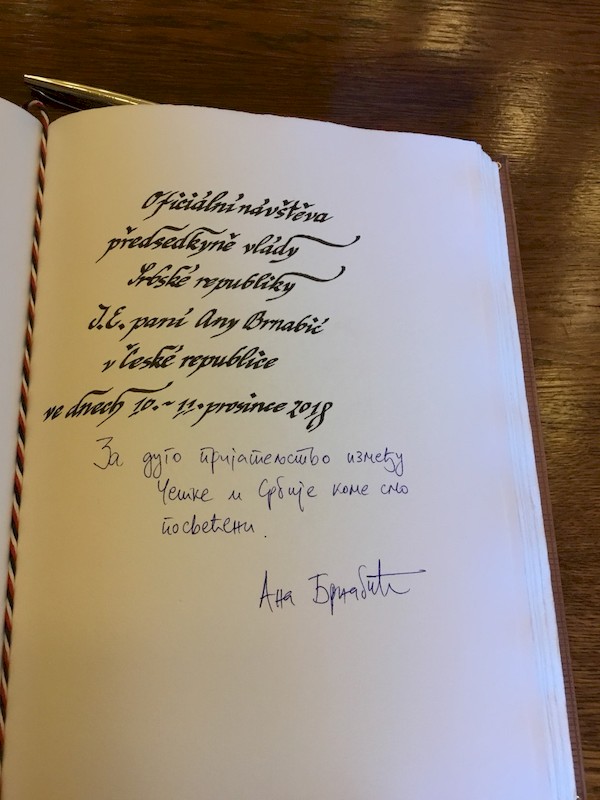 Oficiální návštěva
předsedkyně vlády
Srbské republiky
J.E. paní Any Brnabić
v České republice
ve dnech 10.-11. prosince 2018
За дуго пријатељство између
Чешке и Србије коме смо
посвећени.
Ана Брнабић